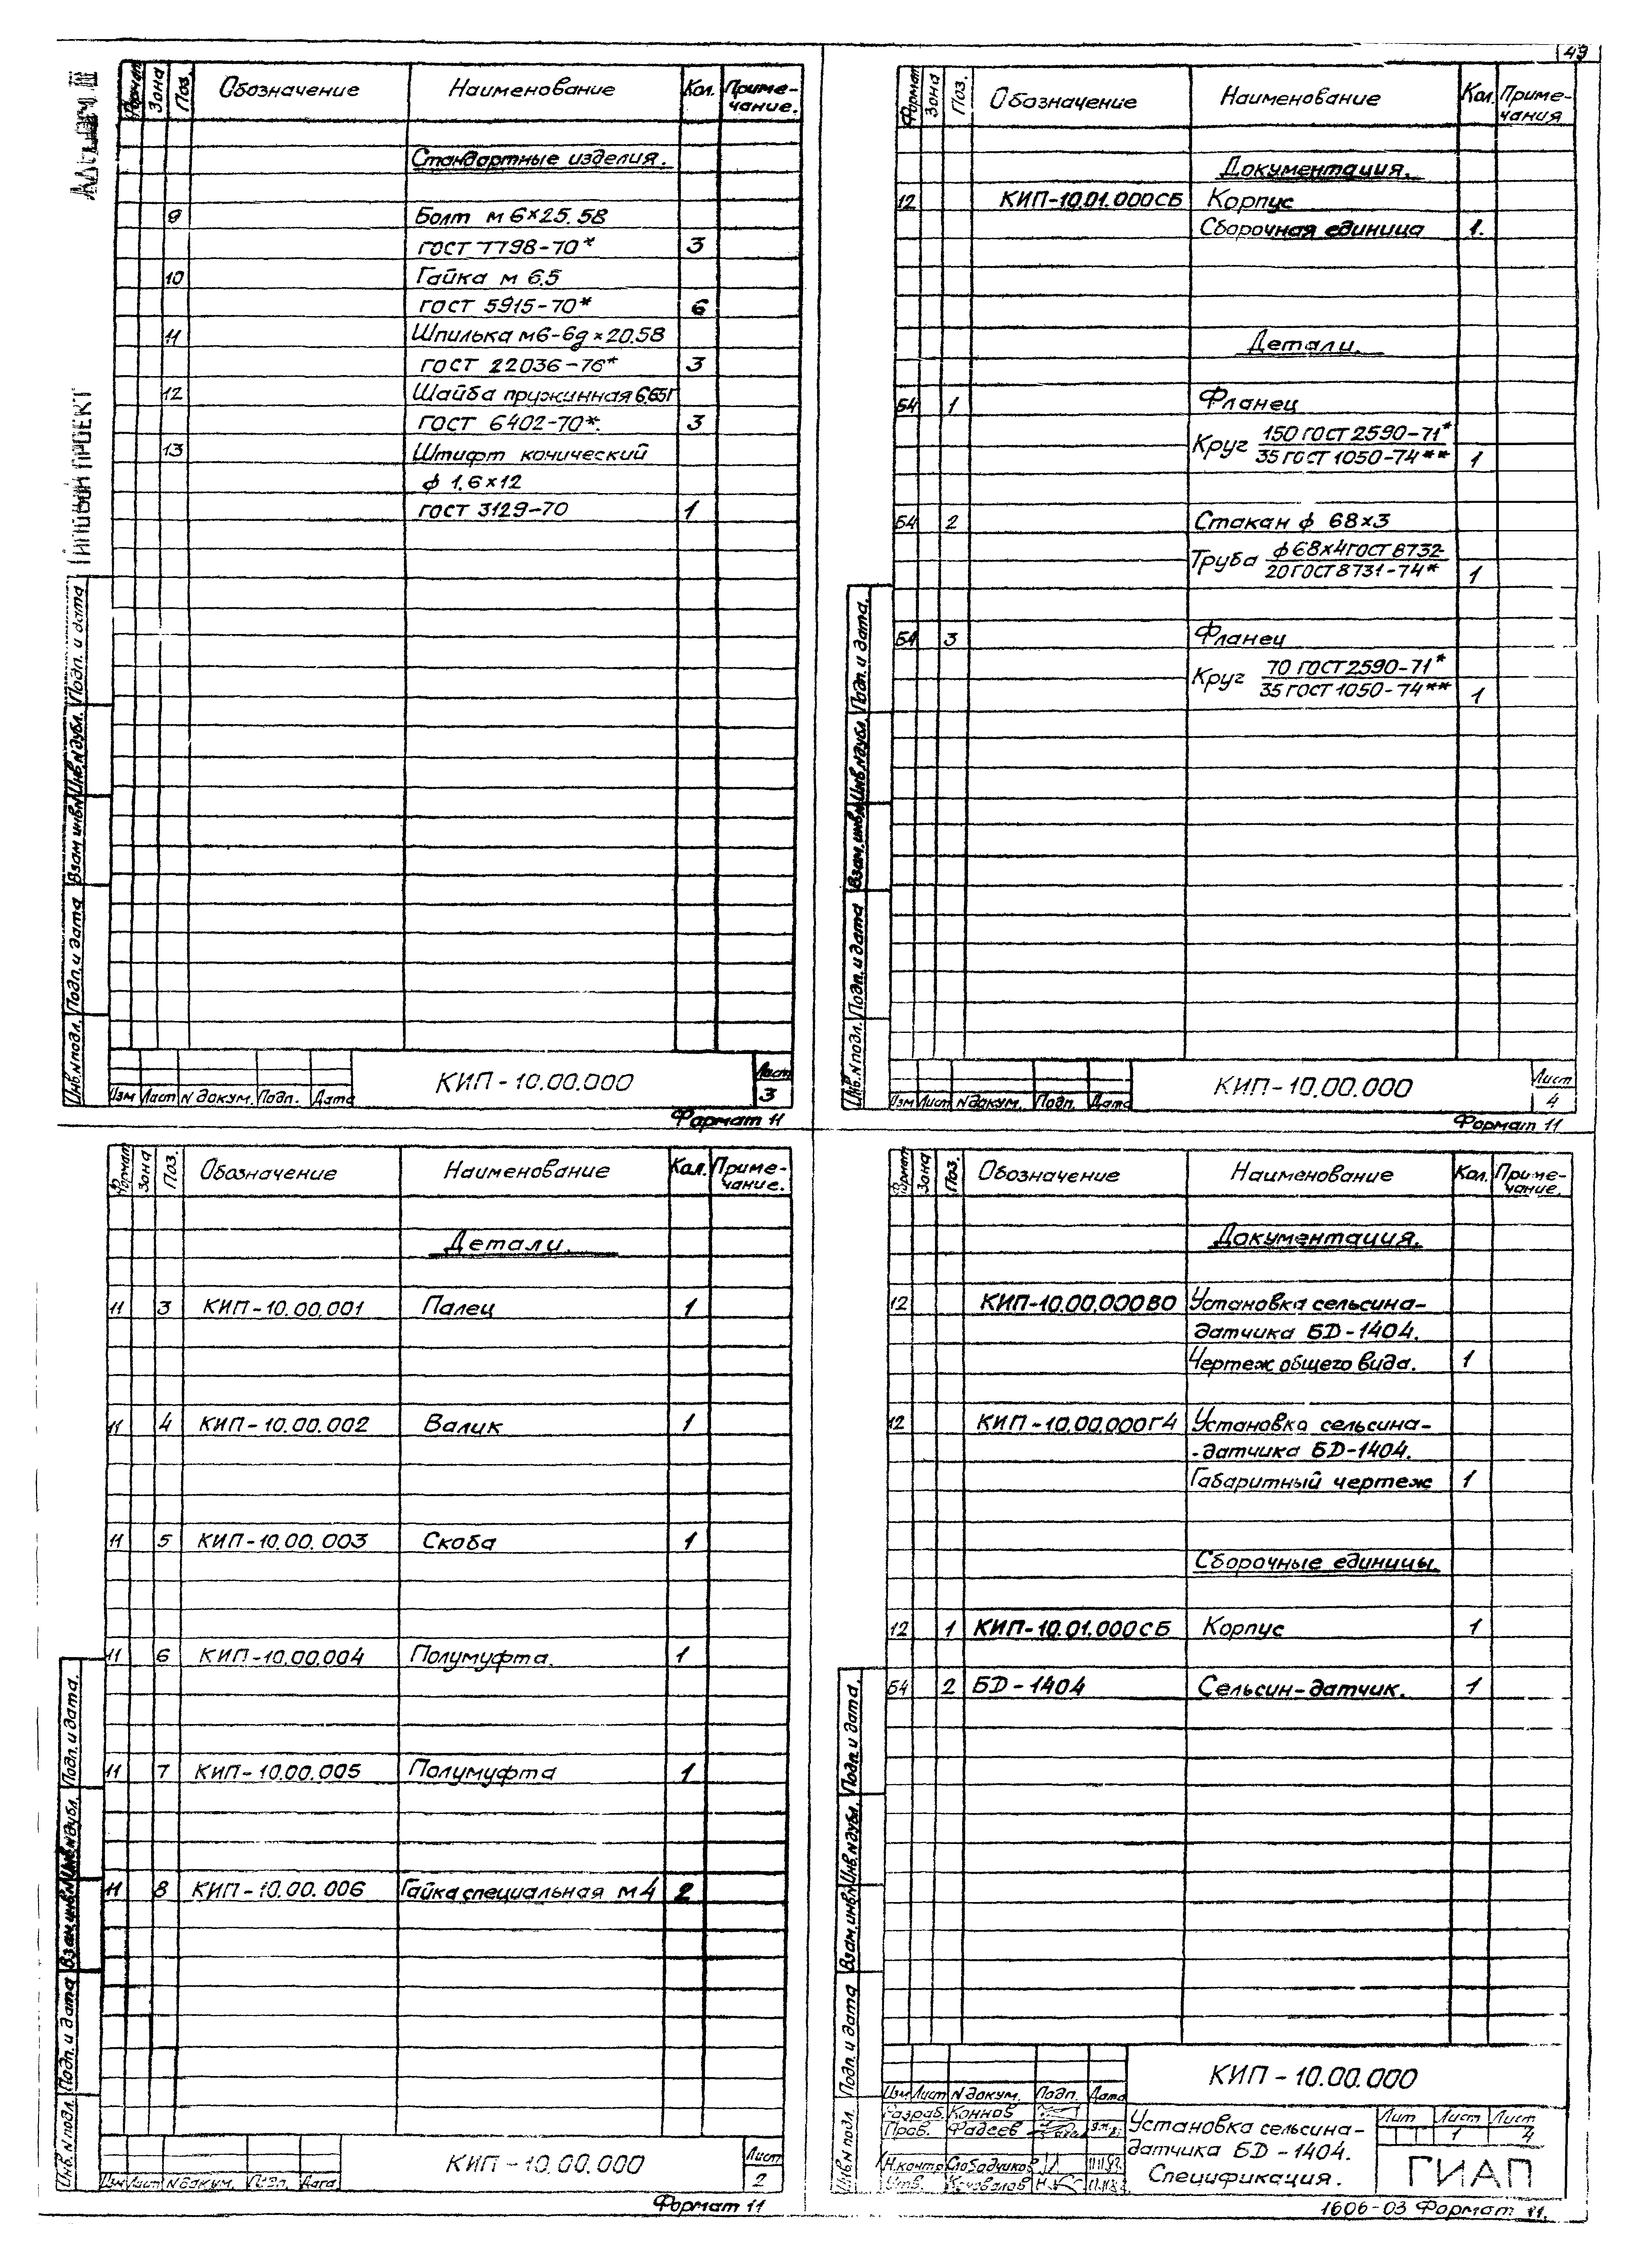 49
Альбом III
Типовой проект
Формат Зона Поз. Обозначение Наименование Кол. Приме-
чание.
Стандартные изделия.
9 Болт м 6×25.58
ГОСТ 7798-70* 3
10 Гайка м 6.5
ГОСТ 5915-70* 6
11 Шпилька м6-6g×20.58
ГОСТ 22036-76* 3
12 Шайба пружинная 6.65Г
ГОСТ 6402-70*. 3
13 Штифт конический
ф 1,6×12
ГОСТ 3129-70 1
Инв.N подл. Подп. и дата Взам инвN Инв.N дубл. Подп. и дата
Изм Лист N докум. Подп. Дата
КИП-10.00.000
Лист
3
Формат 11
Формат Зона Поз. Обозначение Наименование Кол. Приме-
чания
Документация.
12 КИП-10.01.000СБ Корпус
Сборочная единица 1.
Детали.
БЧ 1 Фланец
Круг 150 ГОСТ 2590-71*
35 ГОСТ 1050-74** 1
БЧ 2 Стакан ф 68×3
Труба ф68×4 ГОСТ 8732
20 ГОСТ 8731-74* 1
БЧ 3 Фланец
Круг 70 ГОСТ 2590-71*
35 ГОСТ 1050-74** 1
Инв.N подл. Подп. и дата Взам. инв.N Инв.N дубл. Подп. и дата.
Изм Лист N докум. Подп. Дата
КИП-10.00.000
Лист
4
Формат 11
Формат Зона Поз. Обозначение Наименование Кол. Приме-
чание.
Детали.
11 3 КИП-10.00.001 Палец 1
11 4 КИП-10.00.002 Валик 1
11 5 КИП-10.00.003 Скоба 1
11 6 КИП-10.00.004 Полумуфта. 1
11 7 КИП-10.00.005 Полумуфта 1
11 8 КИП-10.00.006 Гайка специальная м4 2
Инв.N подл. Подп. и дата Взам.инв.N Инв.N дубл. Подп. и дата.
Изм Лист N докум. Подп. Дата
КИП-10.00.000
Лист
2
Формат 11
Формат Зона Поз. Обозначение Наименование Кол. Приме-
чание.
Документация.
12 КИП-10.00.000ВО Установка сельсина-
датчика БД-1404.
Чертеж общего вида. 1
12 КИП-10.00.000ГЧ Установка сельсина-
-датчика БД-1404.
Габаритный чертеж 1
Сборочные единицы.
12 1 КИП-10.01.000СБ Корпус 1
БЧ 2 БД-1404 Сельсин-датчик. 1
Инв.N подл. Подп. и дата Взам.инв.N Инв.N дубл. Подп. и дата.
КИП-10.00.000
Изм Лист N докум. Подп. Дата
Разраб. Коннов
Пров. Фадеев
Н.контр Слободчиков
Утв.
Установка сельсина-
датчика БД-1404.
Спецификация.
Лит Лист Лист
1 4
ГИАП
1606-03 Формат 11.